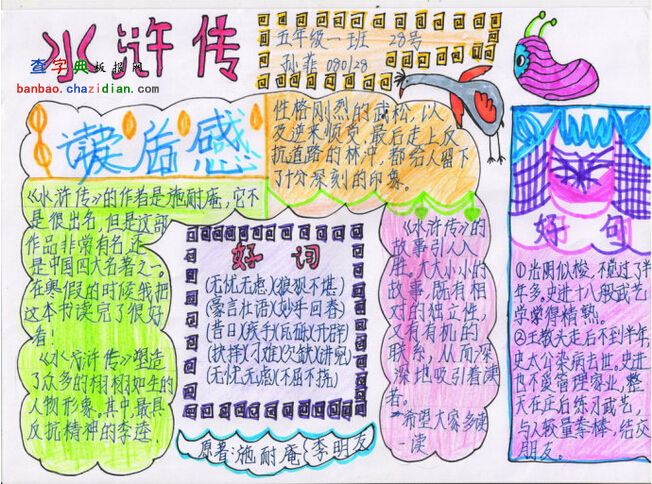 水浒传
查字典板报网
banbao.chazidian.com
五年级一班 28号
孙菲 080128
读后感
《水浒传》的作者是施耐庵,它不
是很出名,但是这部
作品非常有名,还
是中国四大名著之一。
在寒假的时候我把
这本书读完了很好
看!
《水浒传》塑造
了众多的栩栩如生的
人物形象。其中,最具
反抗精神的李逵,
性格刚烈的武松,以
及逆来顺受,最后走上反
抗道路的林冲,都给人留下
了十分深刻的印象。
好词
(无忧无虑)(狼狈不堪)
(豪言壮语)(妙手回春)
(昔日)(疾手)(瓦砾)(开辟)
(抉择)(刁难)(欠缺)(讲究)
(无忧无虑)(不屈不挠)
原著:施耐庵{李明友
《水浒传》的
故事引人入
胜。大大小小的
故事,既有相
对的独立性,
又有有机的
联系,从而深
深地吸引着读
者。
希望大家多读
一读
好句
①光阴似梭,不觉过了半
年多。史进十八般武艺
学学得精熟。
②王教头走后不到半年,
史太公染病去世。史进
也不爱管理家业,整
天在庄后练习武艺,
与人较量拳棒,结交
朋友。